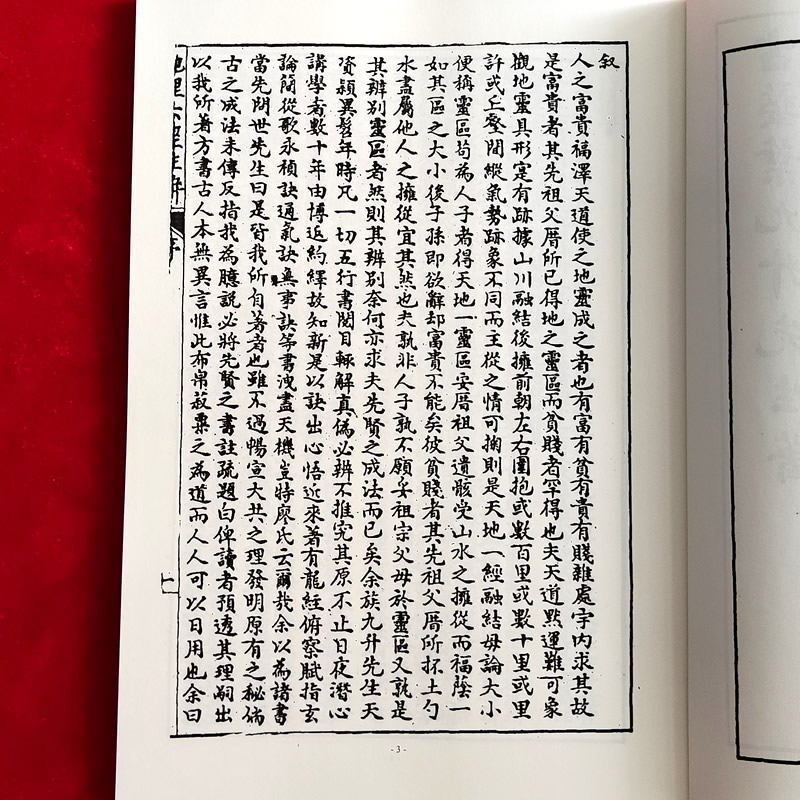 叙
人之富貴福澤天道使之地靈成之者也有富有貧有貴有賤雜處宇內求其故
是富貴者其先祖父厝所已得地之靈區而貧賤者罕得也夫天道黙運難可象
觀地靈具形寔有跡據山川融結後擁前朝左右圍抱或數百里或數十里或里
許或丘壑間縱氣勢跡象不同而主從之情可掬則是天地一經融結毋論大小
便稱靈區苟為人子者得天地一靈區安厝祖父遺骸受山水之擁從而福蔭一
如其區之大小後子孫即欲辭却富貴不能矣彼貧賤者其先祖父厝所抔土勺
水盡屬他人之擁從宜其然也夫孰非人子孰不願妥祖宗父母於靈區又孰是
其辨別靈區者然則其辨別奈何亦求夫先賢之成法而已矣余族九升先生天
資頴異髫年時凡一切五行書閱目輙解真偽必辨不推究其原不止日夜潛心
講學者數十年由博返約繹故知新是以訣出心悟近來著有龍經俯察賦指玄
論簡從歌永禎訣通氣訣無事訣等書洩盡天機豈特廖氏云爾哉余以為諸書
當先問世先生曰是皆我所自著者也雖不過暢宣大共之理發明原有之秘倘
古之成法未傳反指我為臆說必將先賢之書註疏題白俾讀者預透其理嗣出
以我所著方書古人本無異言惟此布帛菽粟之為道而人人可以日用也余曰
序
一
-3-